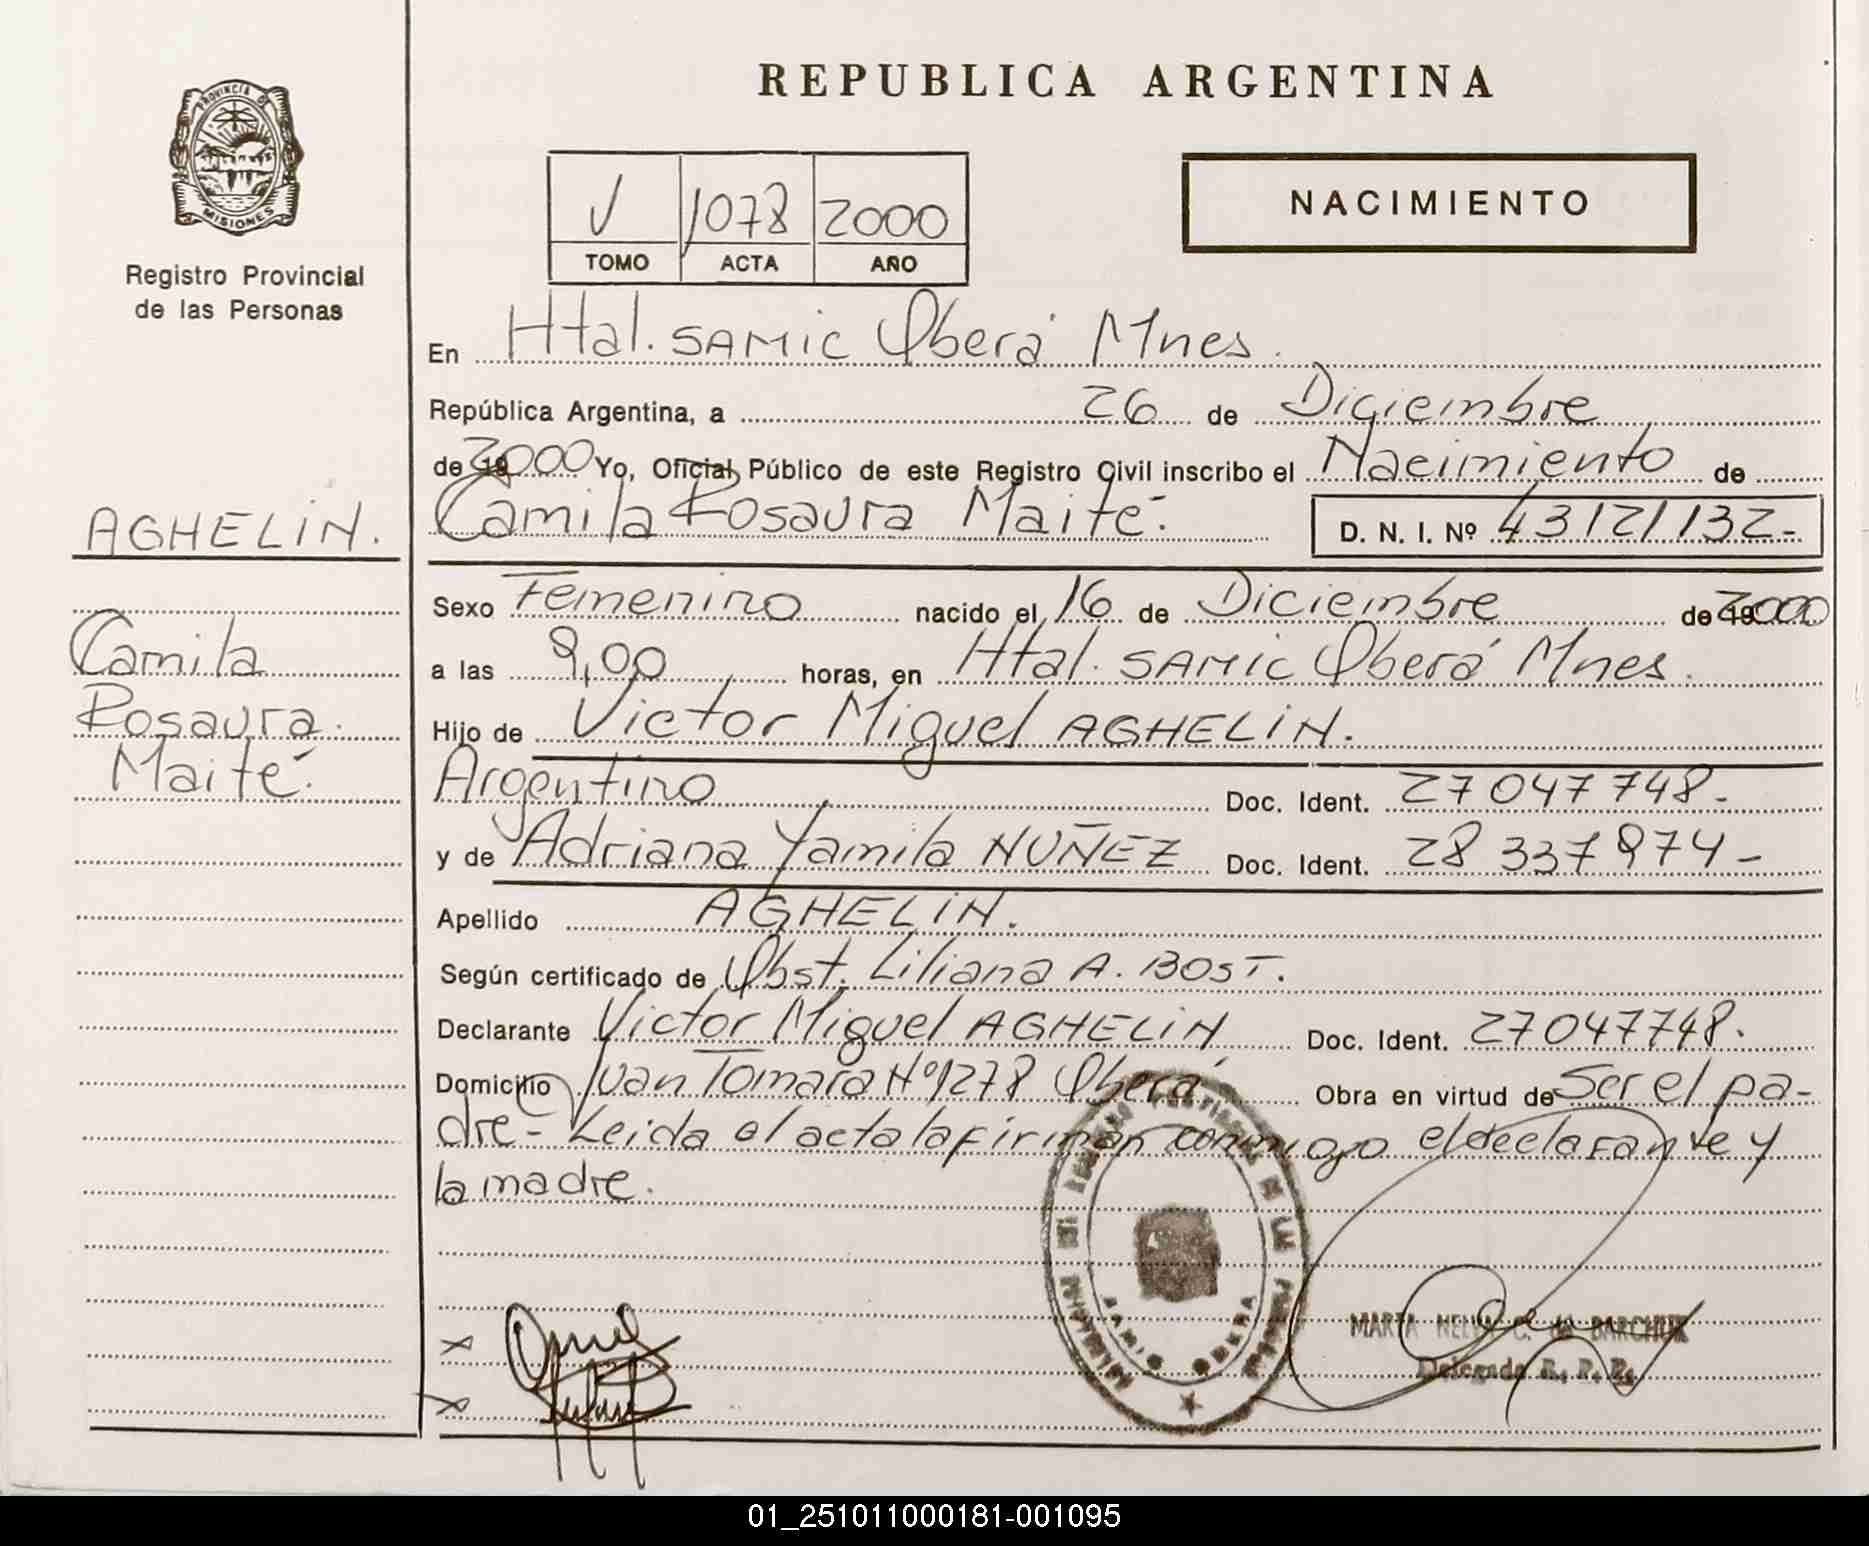 REPUBLICA ARGENTINA
PROVINCIA DE
MISIONES
Registro Provincial
de las Personas
V 1078 2000
TOMO ACTA AÑO
NACIMIENTO
En Htal. SAMIC Oberá Mnes.
República Argentina, a 26 de Diciembre
de 2000 Yo, Oficial Público de este Registro Civil inscribo el Nacimiento de
Camila Rosaura Maité. D. N. I. Nº 43121132-
AGHELIN.
Camila
Rosaura
Maité.
Sexo Femenino nacido el 16 de Diciembre de 2000
a las 9,00 horas, en Htal. SAMIC Oberá Mnes.
Hijo de Victor Miguel AGHELIN.
Argentino Doc. Ident. 27047748-
y de Adriana Yamila NUÑEZ Doc. Ident. 28337974-
Apellido AGHELIN.
Según certificado de Obst. Liliana A. BOST.
Declarante Victor Miguel AGHELIN, Doc. Ident. 27047748.
Domicilio Juan Tomara Nº1278 Oberá Obra en virtud de Ser el pa-
dre- Leida el acta la firman conmigo el declarante y
la madre.
OBERA
MARTA C. de BARCHUK
Delegada R. P. P.
01_251011000181-001095